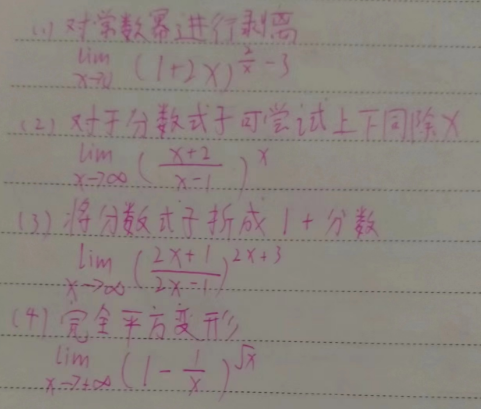 (1) 对常数幂进行剥离
lim x→0 (1+2x)^{2/x - 3}
(2) 对于分数式子可尝试上下同除x
lim x→∞ (x+2/x-1)^x
(3) 将分数式子拆成1+分数
lim x→∞ (2x+1/2x-1)^{2x+3}
(4) 完全平方变形
lim x→+∞ (1-1/x)^{√x}